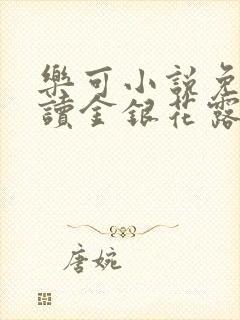 樂可小說免
讀金銀花露
唐婉